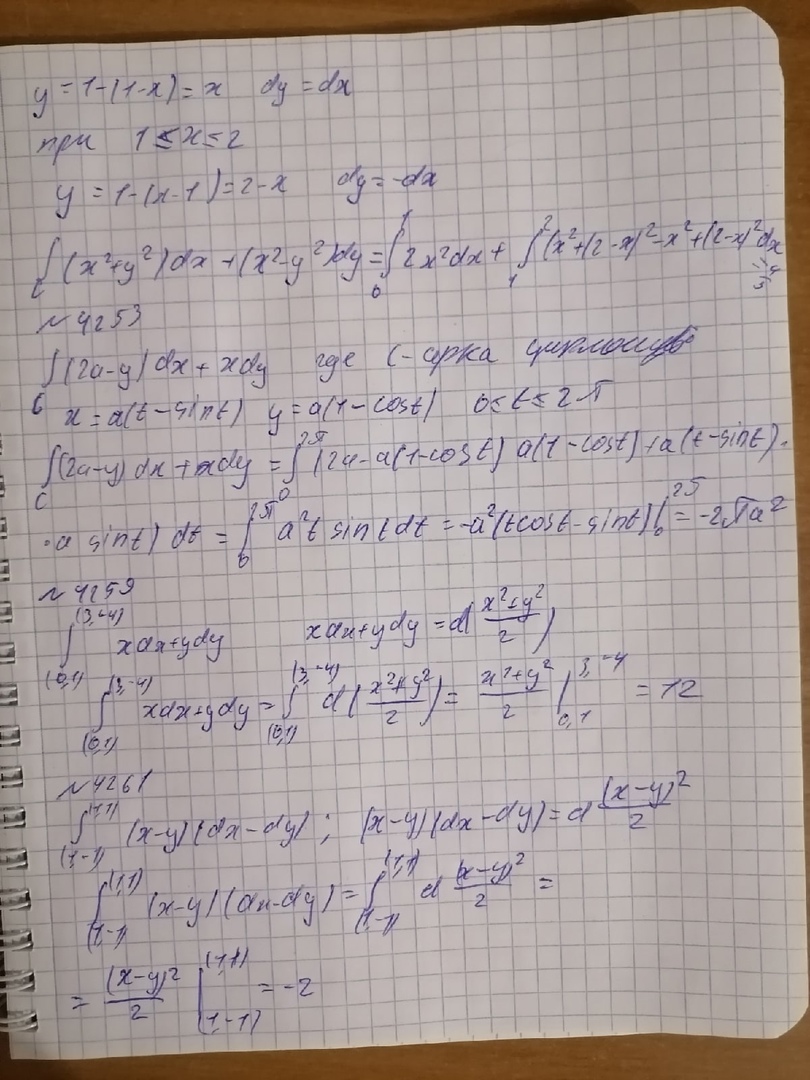 y = 1-(1-x) = x dy = dx
при 1 ≤ x ≤ 2
y = 1-(x-1) = 2-x dy = -dx
∫_C (x²+y²)dx + (x²-y²)dy = ∫_0^1 2x²dx + ∫_1^2 (x²+(2-x)²-x²+(2-x)²dx
= 4/3
№4253
∫_C (2a-y)dx + xdy где C-арка циклоиды
x = a(t-sint) y = a(1-cost) 0 ≤ t ≤ 2π
∫_C (2a-y)dx + xdy = ∫_0^{2π} (2a-a(1-cost) a(1-cost)+a(t-sint)·
·a sint) dt = ∫_0^{2π} a²t sintdt = -a²(tcost-sint)|_0^{2π} = -2πa²
№4259
∫_{(0,1)}^{(3,-4)} xdx+ydy xdx+ydy = d(\frac{x²+y²}{2})
∫_{(0,1)}^{(3,-4)} xdx+ydy = ∫_{(0,1)}^{(3,-4)} d(\frac{x²+y²}{2}) = \frac{x²+y²}{2} |_{0,1}^{3,-4} = 12
№4261
∫_{(1,-1)}^{(1,1)} (x-y)(dx-dy); (x-y)(dx-dy) = d \frac{(x-y)²}{2}
∫_{(1,-1)}^{(1,1)} (x-y)(dx-dy) = ∫_{(1,-1)}^{(1,1)} d \frac{(x-y)²}{2} =
= \frac{(x-y)²}{2} |_{(1,-1)}^{(1,1)} = -2